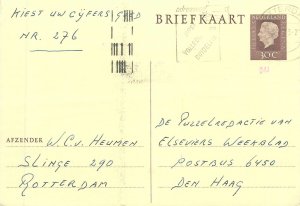 KIEST UW CIJFERS
NR. 276
BRIEFKAART
NEDERLAND
30C
AFZENDER
W.C.V. HEUMEN
SLINGE 290
ROTTERDAM
DE PUZZELREDACTIE VAN
ELSEVIERS WEEKBLAD
POSTBUS 6450
DEN HAAG